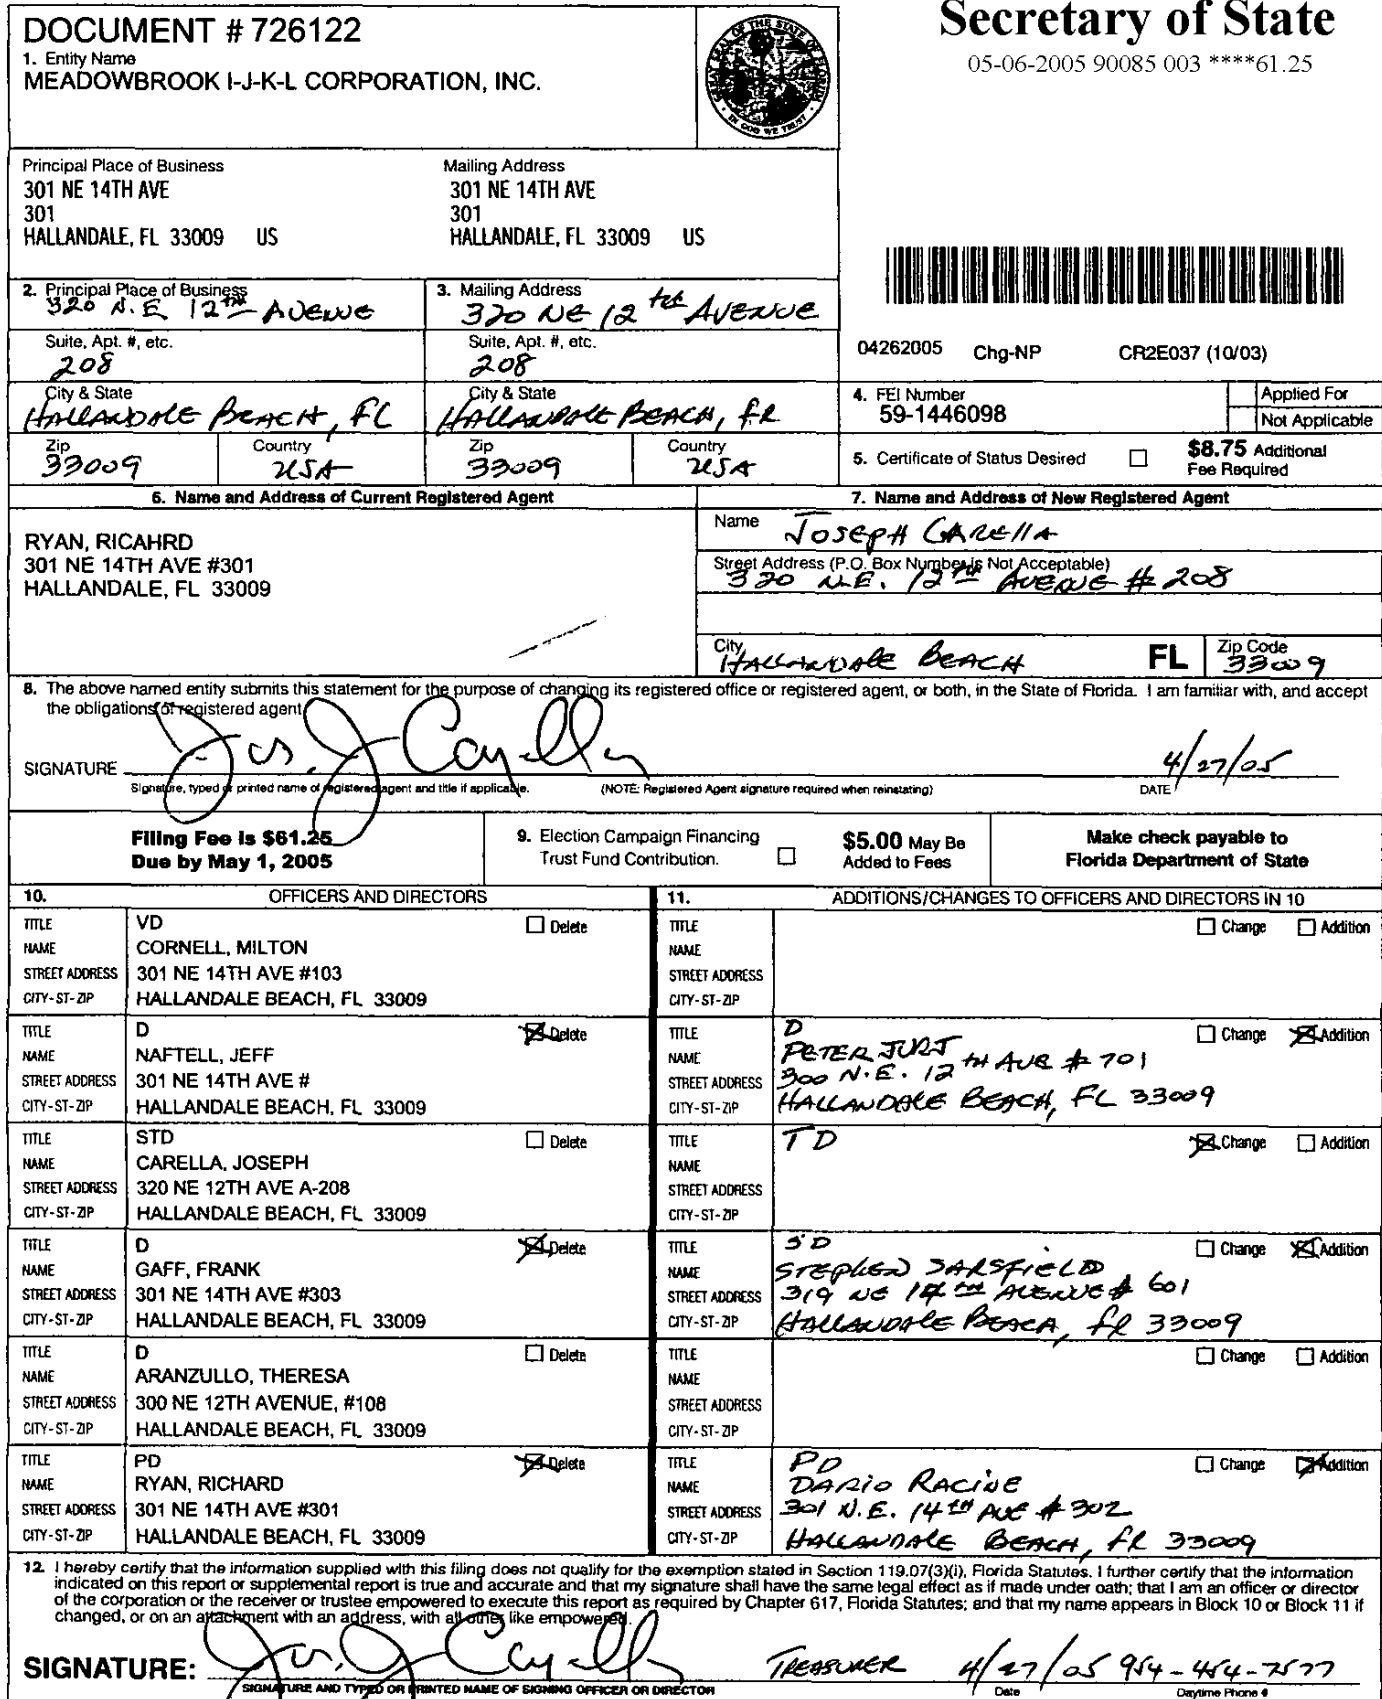 DOCUMENT # 726122
1. Entity Name
MEADOWBROOK I-J-K-L CORPORATION, INC.
Secretary of State
05-06-2005 90085 003 ****61.25
Principal Place of Business
301 NE 14TH AVE
301
HALLANDALE, FL 33009 US
Mailing Address
301 NE 14TH AVE
301
HALLANDALE, FL 33009 US
2. Principal Place of Business
320 N.E. 12TH AVENUE
Suite, Apt. #, etc.
208
City & State
HALLANDALE BEACH, FL
Zip
33009
Country
USA
3. Mailing Address
320 NE 12th AVENUE
Suite, Apt. #, etc.
208
City & State
HALLANDALE BEACH, FL
Zip
33009
Country
USA
04262005 Chg-NP CR2E037 (10/03)
4. FEI Number
59-1446098
Applied For
Not Applicable
5. Certificate of Status Desired
$8.75 Additional
Fee Required
6. Name and Address of Current Registered Agent
RYAN, RICAHRD
301 NE 14TH AVE #301
HALLANDALE, FL 33009
7. Name and Address of New Registered Agent
Name JOSEPH CARELLA
Street Address (P.O. Box Number is Not Acceptable)
320 N.E. 12TH AVENUE # 208
City HALLANDALE BEACH FL Zip Code 33009
8. The above named entity submits this statement for the purpose of changing its registered office or registered agent, or both, in the State of Florida. I am familiar with, and accept
the obligations of registered agent.
SIGNATURE Jos. J Carella 4/27/05
Signature, typed or printed name of registered agent and title if applicable. (NOTE: Registered Agent signature required when reinstating) DATE
Filing Fee is $61.25
Due by May 1, 2005
9. Election Campaign Financing
Trust Fund Contribution.
$5.00 May Be
Added to Fees
Make check payable to
Florida Department of State
10. OFFICERS AND DIRECTORS
11. ADDITIONS/CHANGES TO OFFICERS AND DIRECTORS IN 10
TITLE VD Delete
NAME CORNELL, MILTON
STREET ADDRESS 301 NE 14TH AVE #103
CITY-ST-ZIP HALLANDALE BEACH, FL 33009
TITLE Change Addition
NAME
STREET ADDRESS
CITY-ST-ZIP
TITLE D Delete
NAME NAFTELL, JEFF
STREET ADDRESS 301 NE 14TH AVE #
CITY-ST-ZIP HALLANDALE BEACH, FL 33009
TITLE D Change Addition
NAME PETER JURJ
STREET ADDRESS 300 N.E. 12TH AVE # 701
CITY-ST-ZIP HALLANDALE BEACH, FL 33009
TITLE STD Delete
NAME CARELLA, JOSEPH
STREET ADDRESS 320 NE 12TH AVE A-208
CITY-ST-ZIP HALLANDALE BEACH, FL 33009
TITLE TD Change Addition
NAME
STREET ADDRESS
CITY-ST-ZIP
TITLE D Delete
NAME GAFF, FRANK
STREET ADDRESS 301 NE 14TH AVE #303
CITY-ST-ZIP HALLANDALE BEACH, FL 33009
TITLE SD Change Addition
NAME STEPHEN SARSFIELD
STREET ADDRESS 319 NE 14TH AVENUE # 601
CITY-ST-ZIP HALLANDALE BEACH, FL 33009
TITLE D Delete
NAME ARANZULLO, THERESA
STREET ADDRESS 300 NE 12TH AVENUE, #108
CITY-ST-ZIP HALLANDALE BEACH, FL 33009
TITLE Change Addition
NAME
STREET ADDRESS
CITY-ST-ZIP
TITLE PD Delete
NAME RYAN, RICHARD
STREET ADDRESS 301 NE 14TH AVE #301
CITY-ST-ZIP HALLANDALE BEACH, FL 33009
TITLE PD Change Addition
NAME DARIO RACINE
STREET ADDRESS 301 N.E. 14TH AVE # 302
CITY-ST-ZIP HALLANDALE BEACH, FL 33009
12. I hereby certify that the information supplied with this filing does not qualify for the exemption stated in Section 119.07(3)(i), Florida Statutes. I further certify that the information
indicated on this report or supplemental report is true and accurate and that my signature shall have the same legal effect as if made under oath; that I am an officer or director
of the corporation or the receiver or trustee empowered to execute this report as required by Chapter 617, Florida Statutes; and that my name appears in Block 10 or Block 11 if
changed, or on an attachment with an address, with all other like empowered.
SIGNATURE: Jos. J Carella TREASURER 4/27/05 954-454-7577
SIGNATURE AND TYPED OR PRINTED NAME OF SIGNING OFFICER OR DIRECTOR Date Daytime Phone #